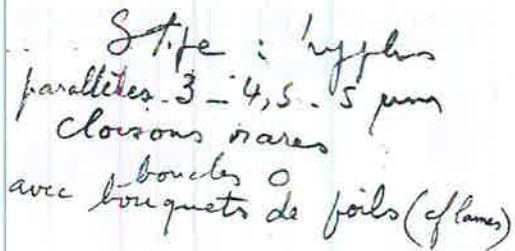 Stipe : hyphes
parallèles 3 - 4,5 - 5 µm
cloisons rares
boucles O
avec bouquets de poils (cf lames)